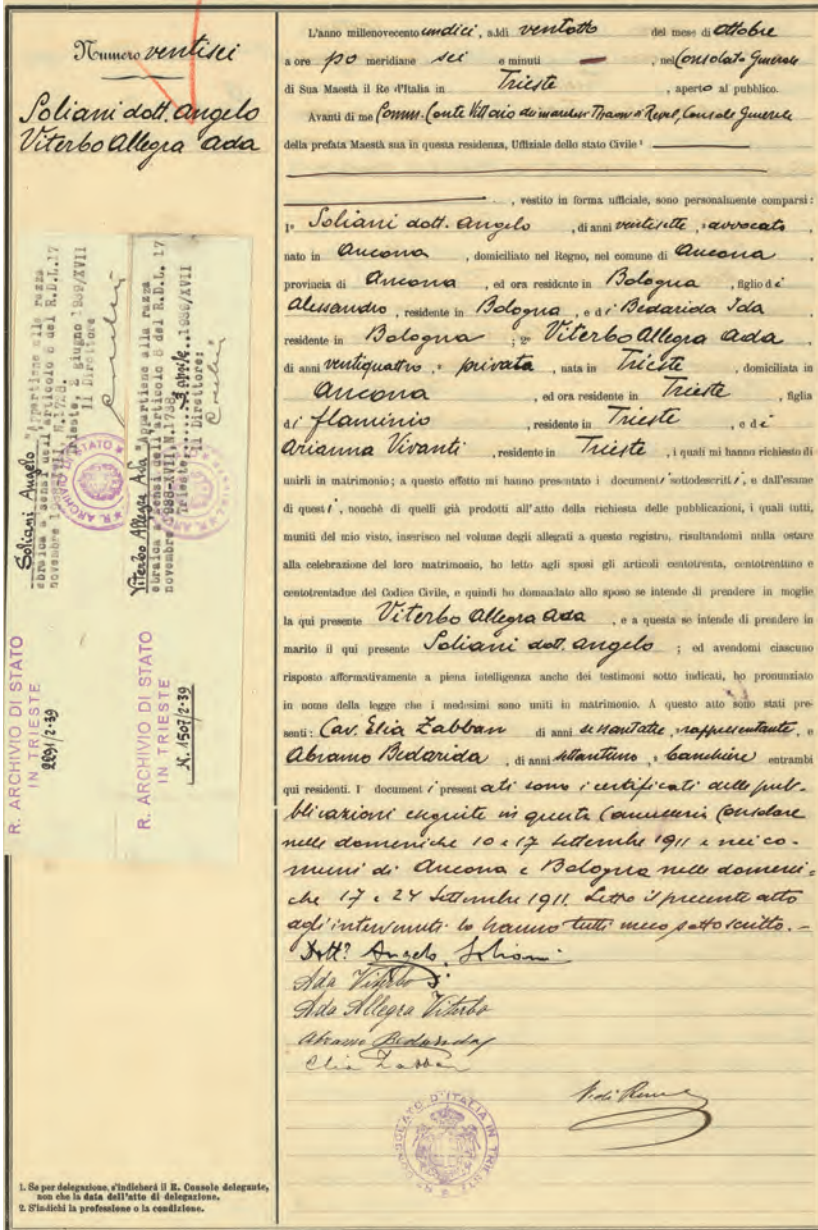 Numero ventisei
Soliani dott. Angelo
Viterbo Allegra Ada
Soliani Angelo "Appartiene alla razza
ebraica a sensi dell'articolo 8 del R.D.L. 17
novembre N.1728.
Trieste, 2 giugno 1939/XVII
Il Direttore
R. ARCHIVIO DI STATO
IN TRIESTE
2291/2-39
R. ARCHIVIO DI STATO
Viterbo Allegra Ada "Appartiene alla razza
ebraica a sensi dell'articolo 8 del R.D.L. 17
novembre 1938-XVII, N.1738.
Trieste, 3 aprile..1939/XVII
Il Direttore:
R. ARCHIVIO DI STATO
IN TRIESTE
N. 1507/2-39
R. ARCHIVIO DI STATO
1. Se per delegazione, s'indicherà il R. Console delegante,
non che la data dell'atto di delegazione.
2. S'indichi la professione o la condizione.
L'anno millenovecento undici, addì ventotto del mese di Ottobre
a ore po meridiane sei e minuti — , nel Consolato Generale
di Sua Maestà il Re d'Italia in Trieste , aperto al pubblico.
Avanti di me Comm. Conte Vittorio dei marchesi Thaon di Revel, Console Generale
della prefata Maestà sua in questa residenza, Uffiziale dello stato Civile ¹
, vestito in forma ufficiale, sono personalmente comparsi:
1º Soliani dott. Angelo , di anni ventisette , avvocato ,
nato in Ancona , domiciliato nel Regno, nel comune di Ancona ,
provincia di Ancona , ed ora residente in Bologna , figlio di
Alessandro , residente in Bologna , e di Bedarida Ida
residente in Bologna ; 2º Viterbo Allegra Ada ,
di anni ventiquattro , privata , nata in Trieste , domiciliata in
Ancona , ed ora residente in Trieste , figlia
di flaminio , residente in Trieste , e di
Arianna Vivanti , residente in Trieste , i quali mi hanno richiesto di
unirli in matrimonio; a questo effetto mi hanno presentato i documenti sottodescritti, e dall'esame
di questi, nonchè di quelli già prodotti all'atto della richiesta delle pubblicazioni, i quali tutti,
muniti del mio visto, inserisco nel volume degli allegati a questo registro, risultandomi nulla ostare
alla celebrazione del loro matrimonio, ho letto agli sposi gli articoli centotrenta, centotrentuno e
centotrentadue del Codice Civile, e quindi ho domandato allo sposo se intende di prendere in moglie
la qui presente Viterbo Allegra Ada , e a questa se intende di prendere in
marito il qui presente Soliani dott. Angelo ; ed avendomi ciascuno
risposto affermativamente a piena intelligenza anche dei testimoni sotto indicati, ho pronunziato
in nome della legge che i medesimi sono uniti in matrimonio. A questo atto sono stati pre-
senti: Cav. Elia Zabban di anni sessantatre, rappresentante, e
Abramo Bedarida , di anni settantuno , banchiere entrambi
qui residenti. I documenti presentati sono i certificati delle pub-
blicazioni eseguite in questa Cancelleria Consolare
nelle domeniche 10 e 17 Settembre 1911 e nei co-
muni di Ancona e Bologna nelle domeni-
che 17 e 24 Settembre 1911. Letto il presente atto
agli intervenuti lo hanno tutti meco sottoscritto.-
Dott. Angelo Soliani
Ada Viterbo
Ada Allegra Viterbo
Abramo Bedarida
Elia Zabban
CONSOLATO D'ITALIA IN TRIESTE